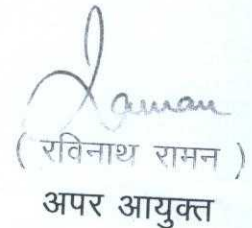 Raman
( रविनाथ रामन )
अपर आयुक्त